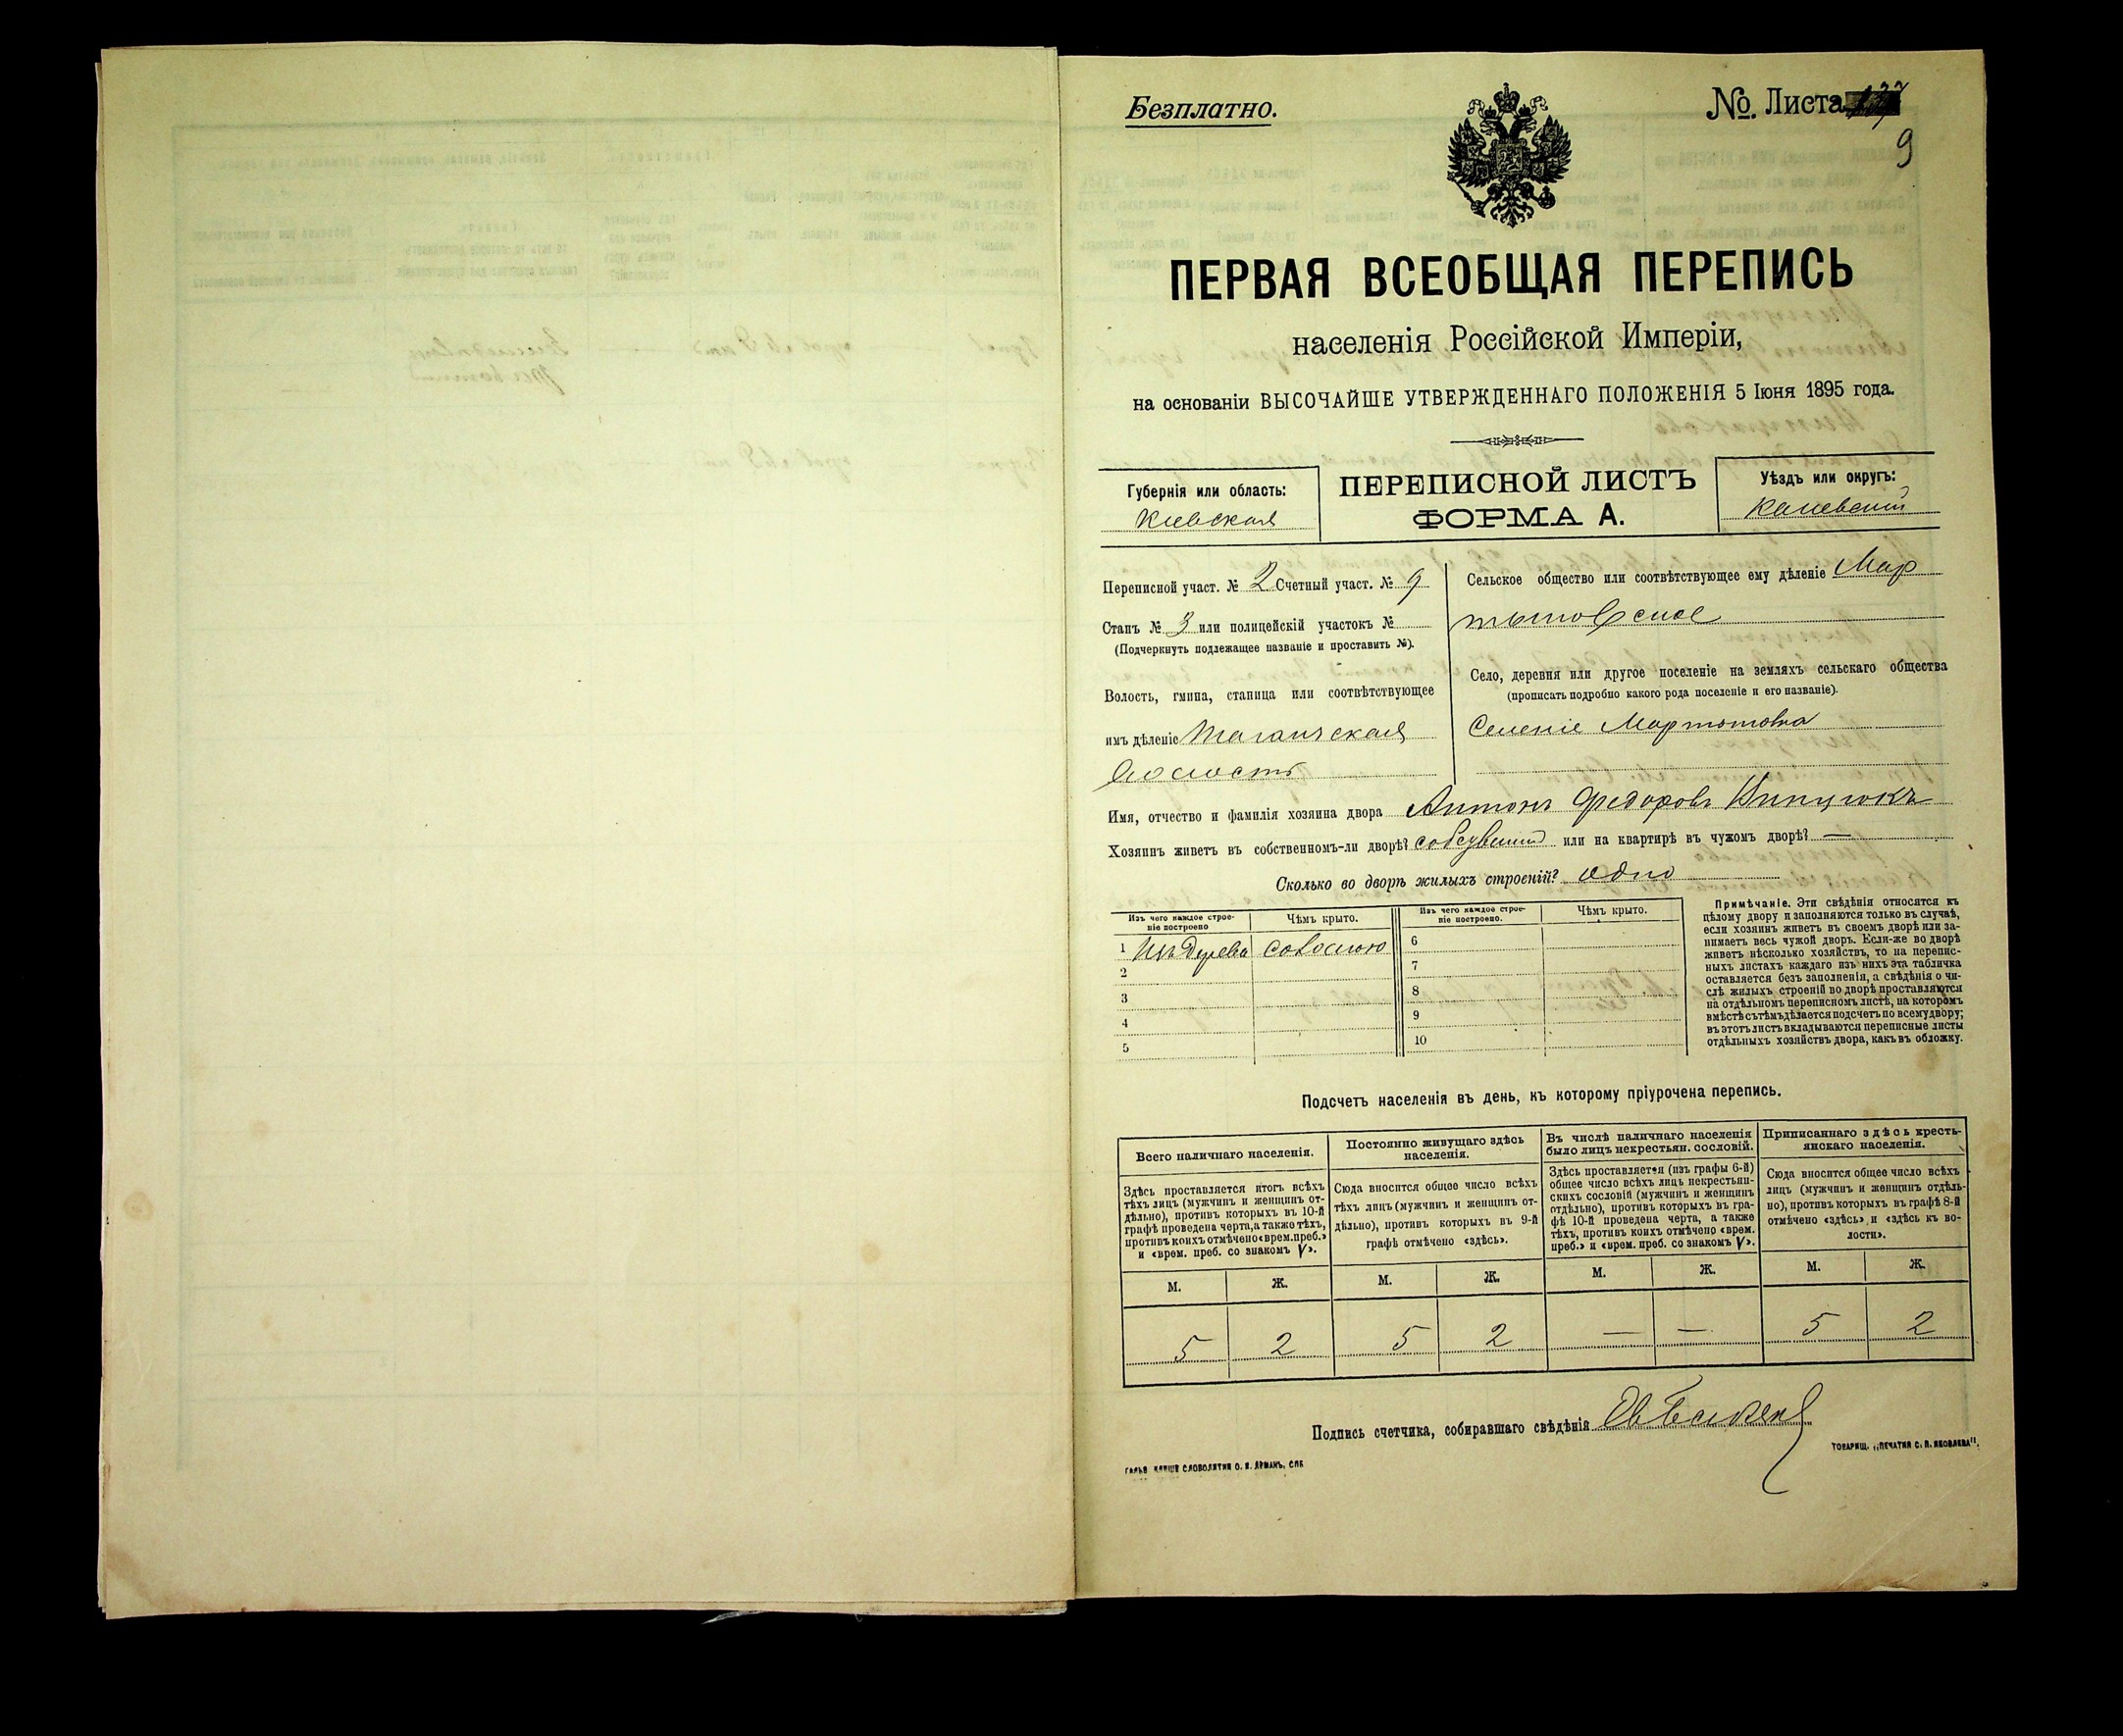 Безплатно.
No. Листа
9
ПЕРВАЯ ВСЕОБЩАЯ ПЕРЕПИСЬ
населенія Россійской Имперіи,
на основаніи ВЫСОЧАЙШЕ УТВЕРЖДЕННАГО ПОЛОЖЕНІЯ 5 Іюня 1895 года.
Губернія или область:
Кіевская
ПЕРЕПИСНОЙ ЛИСТЪ
ФОРМА А.
Уѣздъ или округъ:
Каневскій
Переписной участ. № 2 Счетный участ. № 9
Станъ № 3 или полицейскій участокъ №
(Подчеркнуть подлежащее названіе и проставить №).
Волость, гмина, станица или соотвѣтствующее
имъ дѣленіе Таганчская
волость
Сельское общество или соотвѣтствующее ему дѣленіе Мар
тыновское
Село, деревня или другое поселеніе на земляхъ сельскаго общества
(прописать подробно какого рода поселеніе и его названіе).
Селеніе Мартыновка
Имя, отчество и фамилія хозяина двора Антонъ Федоровъ
Хозяинъ живетъ въ собственномъ-ли дворѣ? или на квартирѣ въ чужомъ дворѣ? —
Сколько во дворѣ жилыхъ строеній? одно
Изъ чего каждое строе-
ніе построено
Чѣмъ крыто.
Изъ чего каждое строе-
ніе построено.
Чѣмъ крыто.
1 Изъ дерева соломою
2
3
4
5
6
7
8
9
10
Примѣчаніе. Эти свѣдѣнія относятся къ
цѣлому двору и заполняются только въ случаѣ,
если хозяинъ живетъ въ своемъ дворѣ или за-
нимаетъ весь чужой дворъ. Если-же во дворѣ
живетъ нѣсколько хозяйствъ, то на перепис-
ныхъ листахъ каждаго изъ нихъ эта табличка
оставляется безъ заполненія, а свѣдѣнія о чи-
слѣ жилыхъ строеній во дворѣ проставляются
на отдѣльномъ переписномъ листѣ, на которомъ
вмѣстѣ съ тѣмъ дѣлается подсчетъ по всему двору;
въ этотъ листъ вкладываются переписные листы
отдѣльныхъ хозяйствъ двора, какъ въ обложку.
Подсчетъ населенія въ день, къ которому пріурочена перепись.
Всего наличнаго населенія.
Здѣсь проставляется итогъ всѣхъ
тѣхъ лицъ (мужчинъ и женщинъ от-
дѣльно), противъ которыхъ въ 10-й
графѣ проведена черта, а также тѣхъ,
противъ коихъ отмѣчено «врем. преб.»
и «врем. преб. со знакомъ V».
Постоянно живущаго здѣсь
населенія.
Сюда вносится общее число всѣхъ
тѣхъ лицъ (мужчинъ и женщинъ от-
дѣльно), противъ которыхъ въ 9-й
графѣ отмѣчено «здѣсь».
Въ числѣ наличнаго населенія
было лицъ некрестьян. сословій.
Здѣсь проставляется (изъ графы 6-й)
общее число всѣхъ лицъ некрестьян-
скихъ сословій (мужчинъ и женщинъ
отдѣльно), противъ которыхъ въ гра-
фѣ 10-й проведена черта, а также
тѣхъ, противъ коихъ отмѣчено «врем.
преб.» и «врем. преб. со знакомъ V».
Приписаннаго здѣсь кресть-
янскаго населенія.
Сюда вносится общее число всѣхъ
лицъ (мужчинъ и женщинъ отдѣль-
но), противъ которыхъ въ графѣ 8-й
отмѣчено «здѣсь» и «здѣсь къ во-
лости».
М. Ж. М. Ж. М. Ж. М. Ж.
5 2 5 2 — — 5 2
Подпись счетчика, собиравшаго свѣдѣнія
СЛОВОЛИТНИ О. И. ЛЕМАНЪ. СПБ
ТОВАРИЩ. „ПЕЧАТНЯ С. П. ЯКОВЛЕВА".